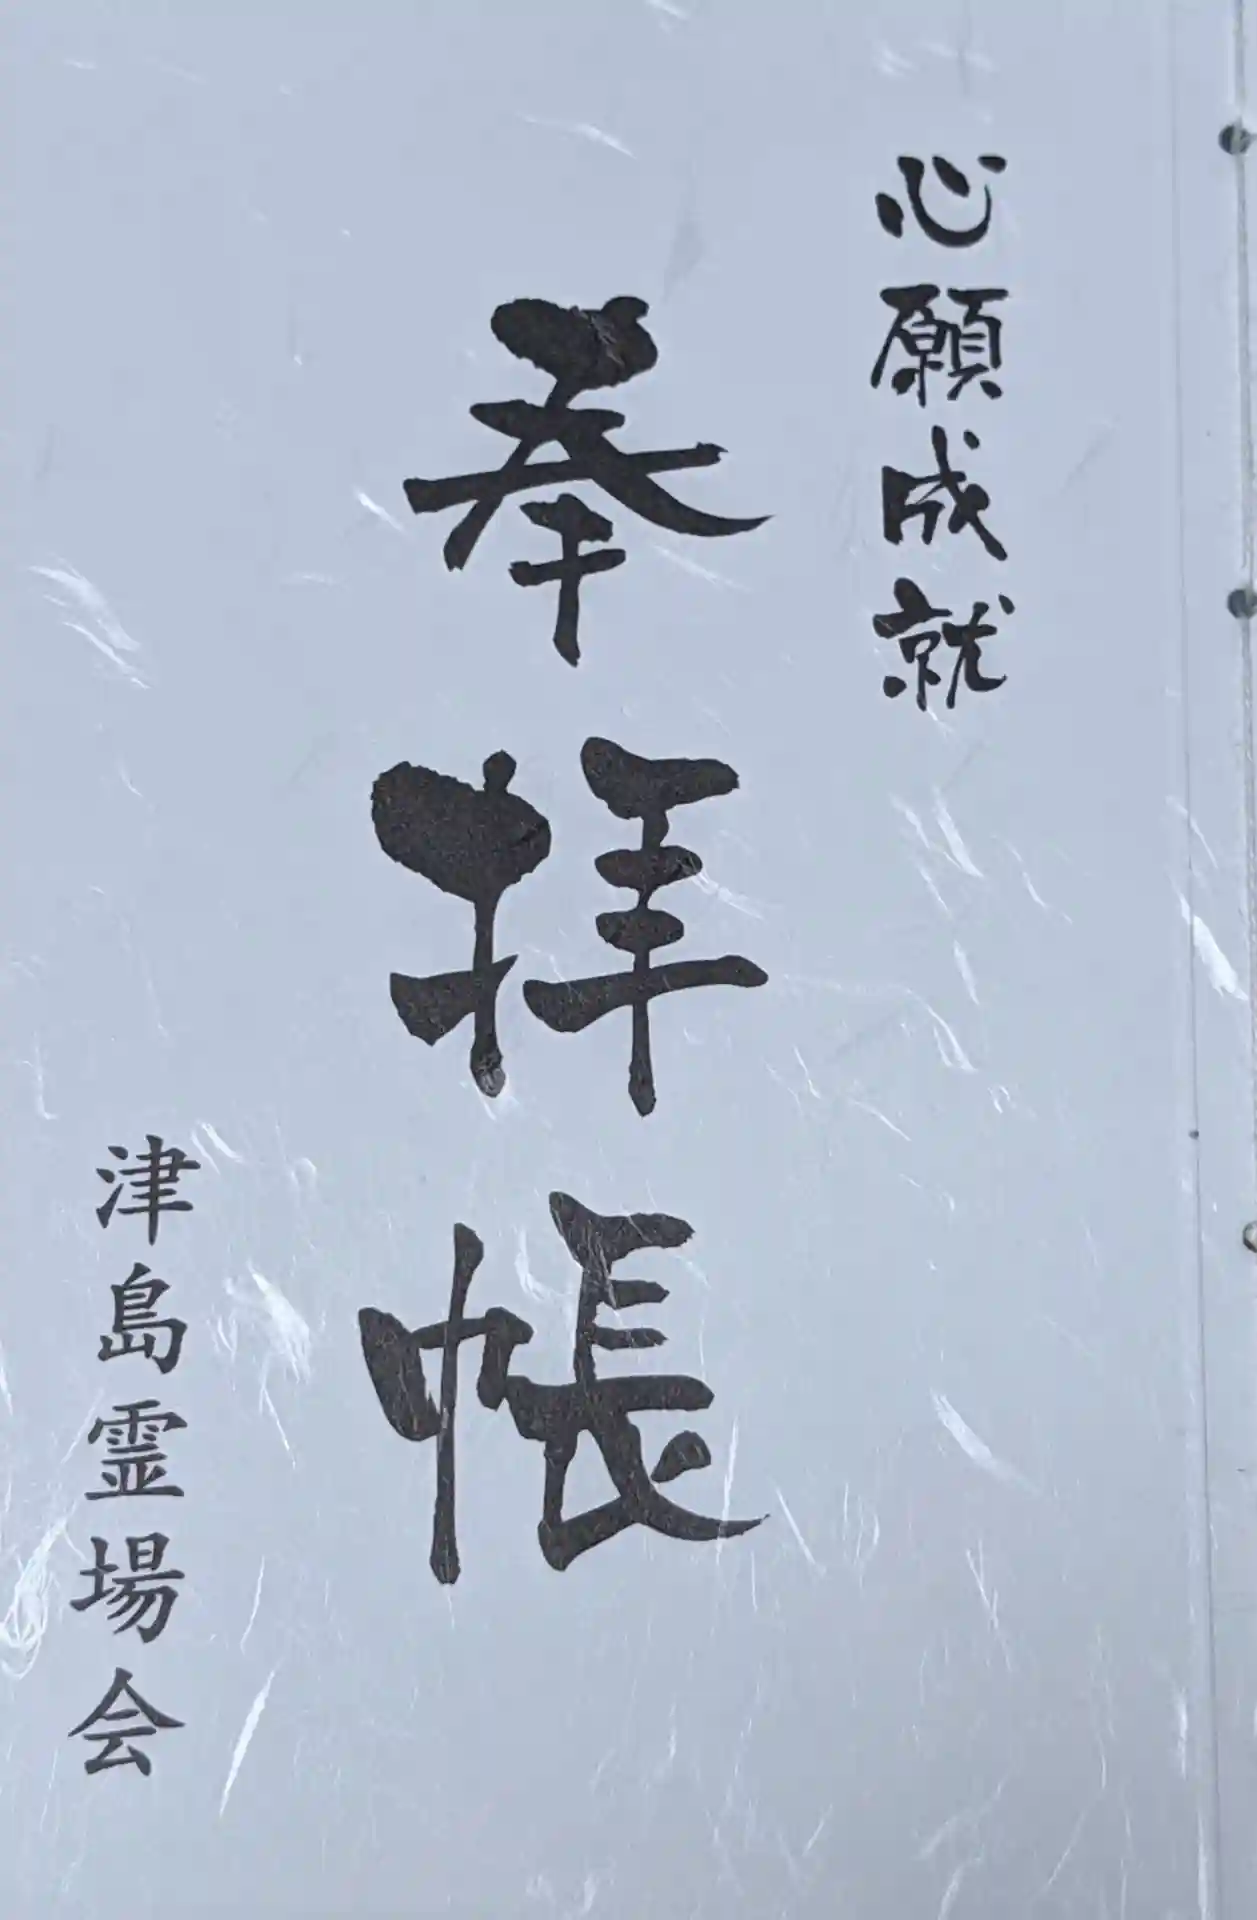 心願成就
奉拝帳
津島霊場会